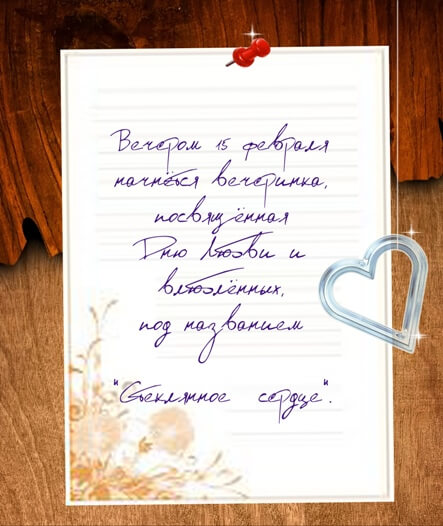 Вечером 15 февраля
начнётся вечеринка,
посвящённая
Дню Любви и
влюблённых,
под названием
"Стеклянное сердце".